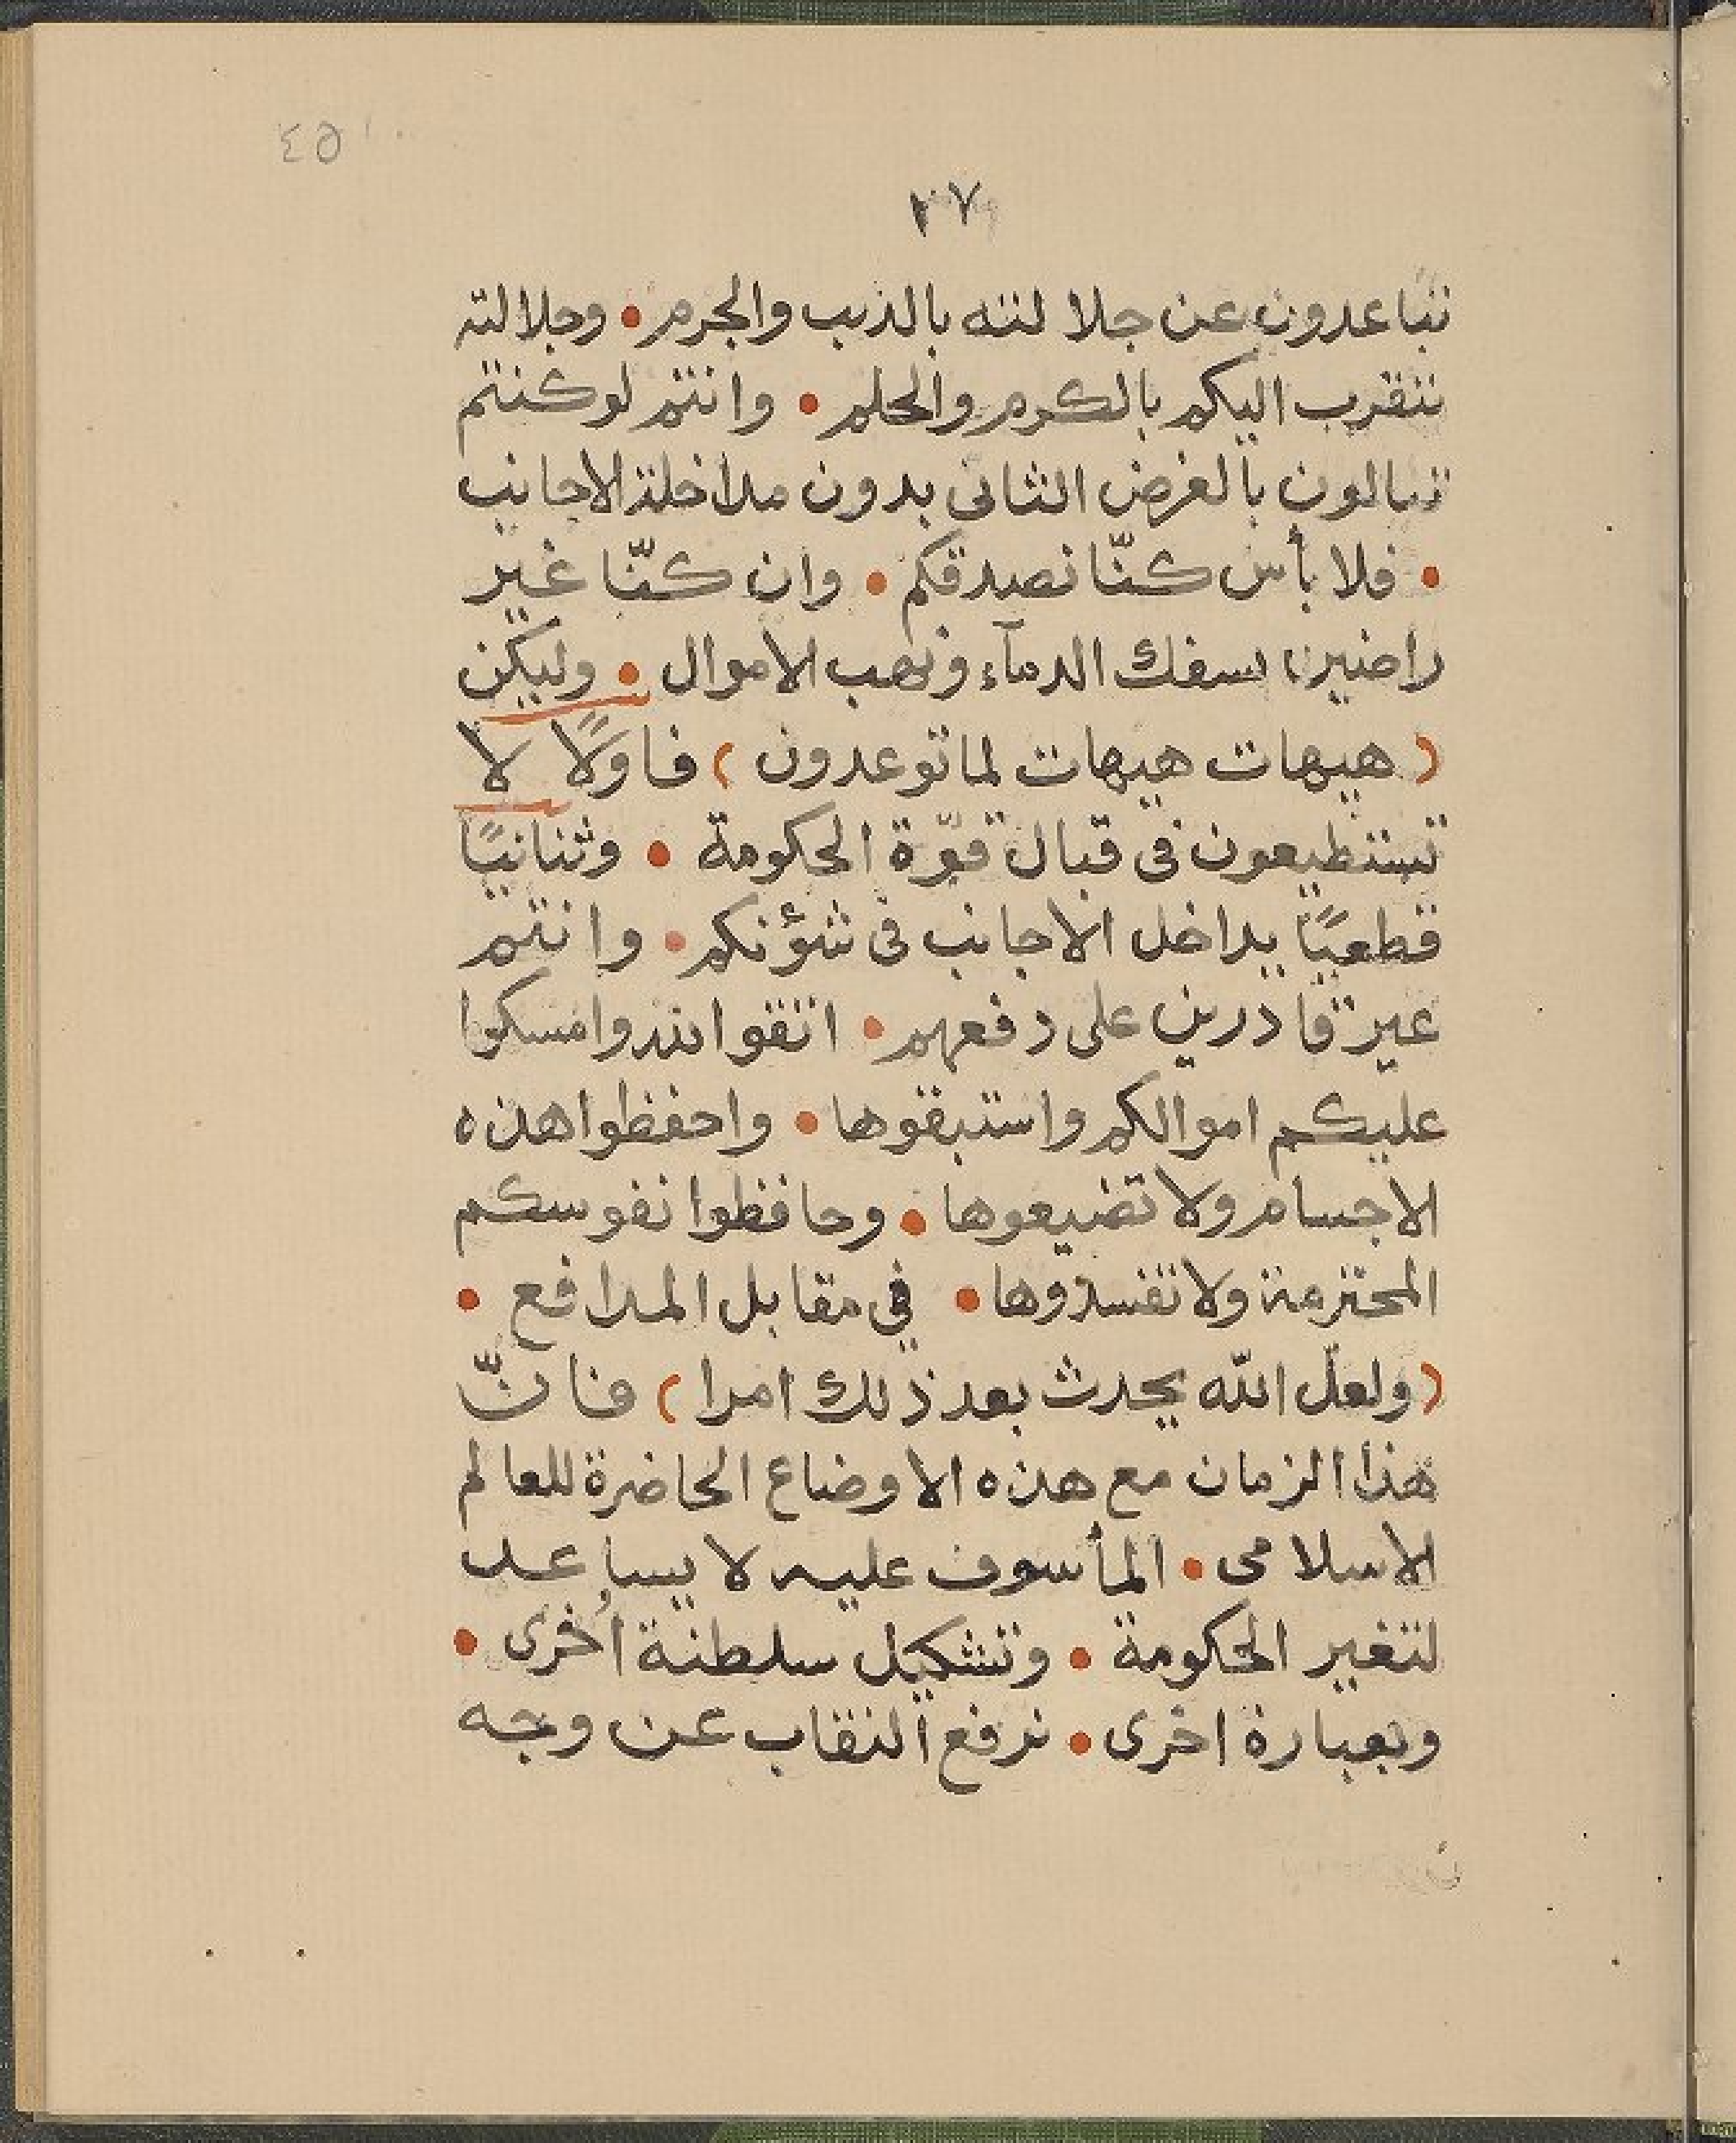 ٤٥
٢٧
تتباعدون عن جلالته بالذنب والجرم • وجلالته
تتقرب اليكم بالكرم والحلم • وانتم لوكنتم
تنالون بالغرض الثاني بدون مداخلة الاجانب
• فلا بأس كنّا نصدقكم • وان كنّا غير
راضين بسفك الدمآء ونهب الاموال • وليكن
( هيهات هيهات لما توعدون ) فاولًا لا
تستطيعون فى قبال قوّة الحكومة • وثانيًا
قطعيًا يداخل الاجانب فى شؤنكم • وانتم
غير قادرين على دفعهم • اتقوا الله وامسكوا
عليكم اموالكم واستبقوها • واحفظوا هذه
الاجسام ولا تضيعوها • وحافظوا نفوسكم
المحترمة ولا تفسدوها • في مقابل المدافع •
( ولعلّ الله يحدث بعد ذلك امرا ) فانّ
هذا الزمان مع هذه الاوضاع الحاضرة للعالم
الاسلامى • المأسوف عليه لا يساعد
لتغير الحكومة • وتشكيل سلطنة اُخرى •
وبعبارة اخرى • نرفع النقاب عن وجه